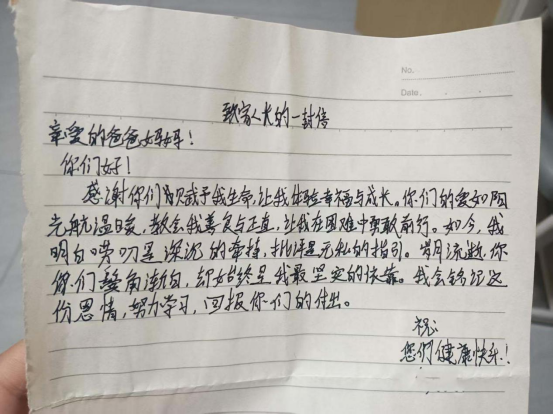 No.
Date.
致家人长的一封信
亲爱的爸爸妈妈！
你们好！
感谢你们赋予我生命，让我体验幸福与成长。你们的爱如阳
光般温暖，教会我善良与正直，让我在困难中勇敢前行。如今，我
明白唠叨是深沉的牵挂，批评是无私的指引。岁月流逝，你
你们鬓角渐白，却始终是我最坚实的依靠。我会铭记这
份恩情，努力学习，回报你们的付出。
祝
您们健康快乐！